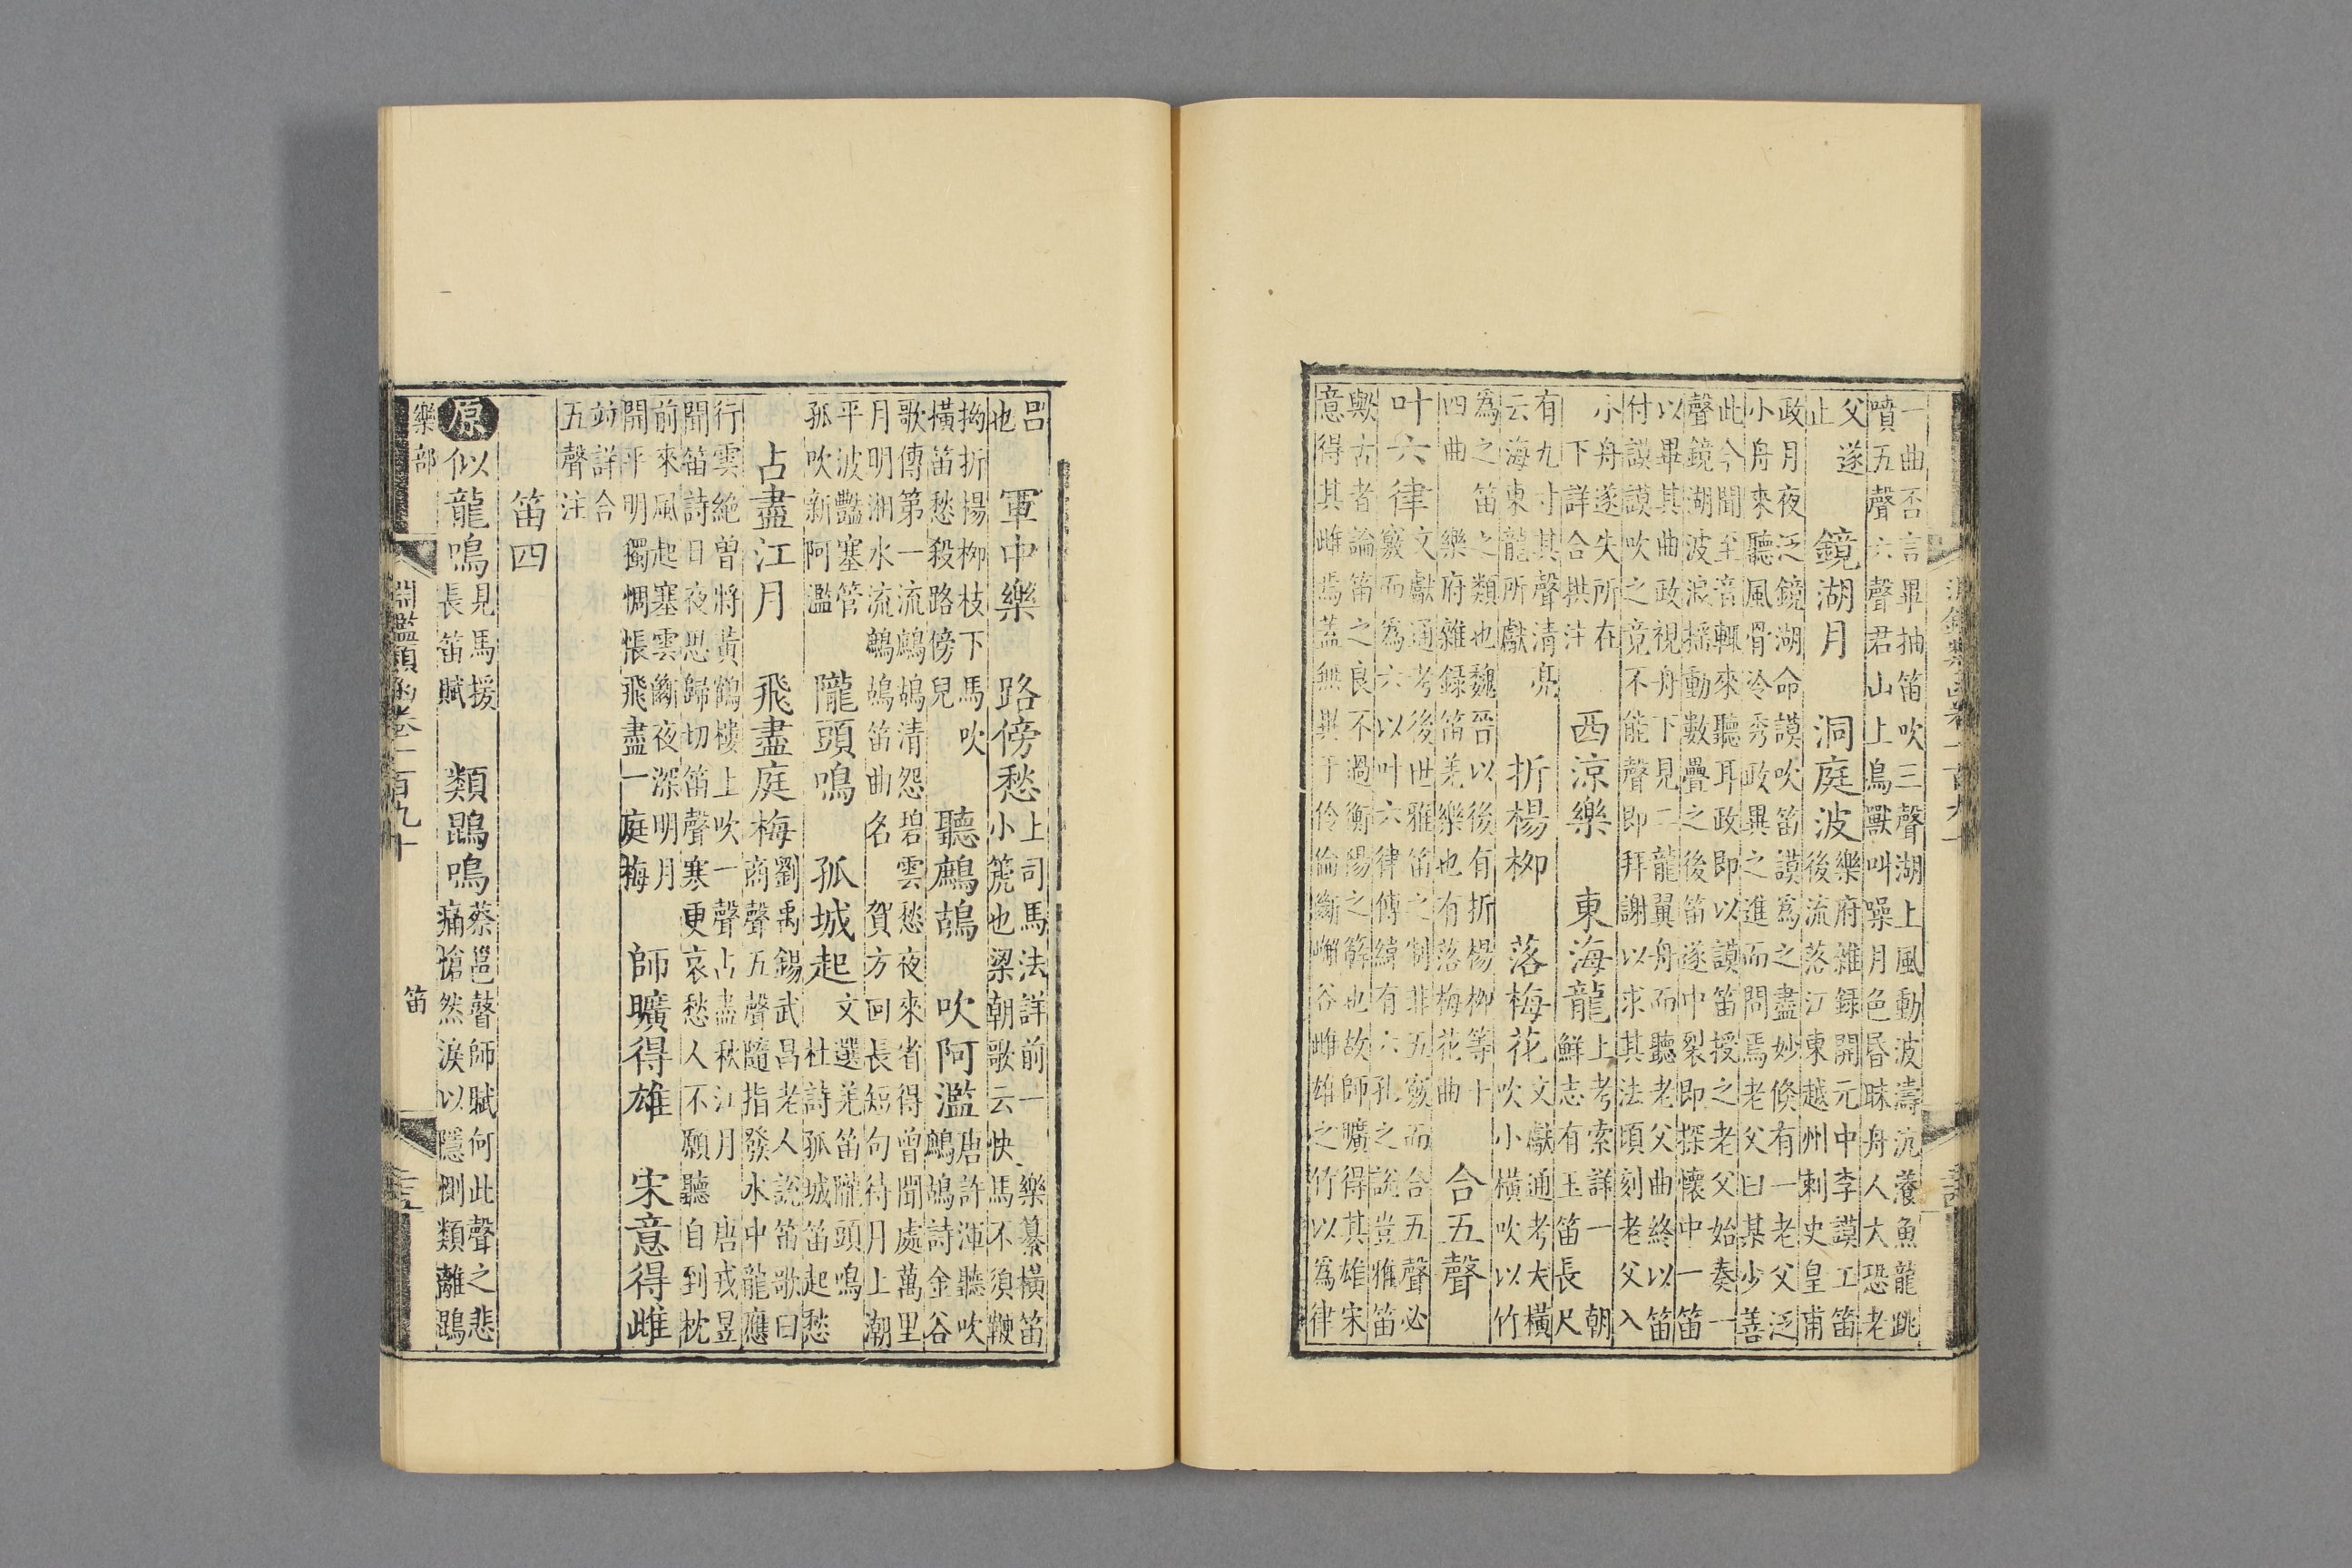 一曲否言畢抽笛吹三聲湖上風動波濤沆瀁魚龍跳
噴五聲六聲君山上鳥獸叫噪月色昏昧舟人大恐老
父遂
止
鏡湖月　洞庭波
樂府雜録開元中李謨工笛
後流落江東越州刺史皇甫
政月夜泛鏡湖命謨吹笛謨爲之盡妙倐有一老父泛
小舟來聽風骨冷秀政異之進而問焉老父曰某少善
此今聞至音輒來聽耳政即以謨笛授之老父始奏一
聲鏡湖波浪揺動數疊之後笛遂中裂即探懷中一笛
以畢其曲政視舟下見二龍翼舟而聽老父曲終以笛
付謨謨吹之竟不能聲即拜謝以求其法頃刻老父入
小舟遂失所在
下詳合拱注
西涼樂　東海龍
上考索詳一　朝
鮮志有玉笛長尺
有九寸其聲清亮
云海東龍所獻
折楊柳　落梅花
文獻通考大橫
吹小橫吹以竹
爲之笛之類也魏晉以後有折楊柳等十
四曲　樂府雜録笛羌樂也有落梅花曲
合五聲
叶六律
文獻通考後世雅笛之制非五竅而合五聲必
竅而爲六以叶六律傳緯有六孔之說豈雅笛
歟古者論笛之良不過衡陽之簳也故師曠得其雄宋
意得其雌焉蓋無異于伶倫斷嶰谷雌雄之竹以爲律
呂
也
軍中樂　路傍愁
上司馬法詳前一　樂纂橫笛
小篪也梁朝歌云快馬不須鞭
拗折楊柳枝下馬吹
橫笛愁殺路傍兒
聽鷓鴣　吹阿濫
唐許渾聽吹
鷓鴣詩金谷
歌傳第一流鷓鴣清怨碧雲愁夜來省得曾聞處萬里
月明湘水流鷓鴣笛曲名　賀方回長短句待月上潮
平波豔塞管
孤吹新阿濫
隴頭鳴　孤城起
文選羌笛隴頭鳴
杜詩孤城笛起愁
占盡江月　飛盡庭梅
劉禹錫武昌老人說笛歌曰
商聲五聲隨指發水中龍應
行雲絶曾將黃鶴樓上吹一聲占盡秋江月　唐戎昱
聞笛詩日夜思歸切笛聲寒更哀愁人不願聽自到枕
前來風起塞雲斷夜深明月
開平明獨惆悵飛盡一庭梅
師曠得雄　宋意得雌
竝詳合
五聲注
笛四
原似龍鳴
見馬援
長笛賦
類鵾鳴
蔡邕瞽師賦何此聲之悲
痛愴然淚以隱惻類離鵾
樂部
淵鑑類函卷一百九十
笛